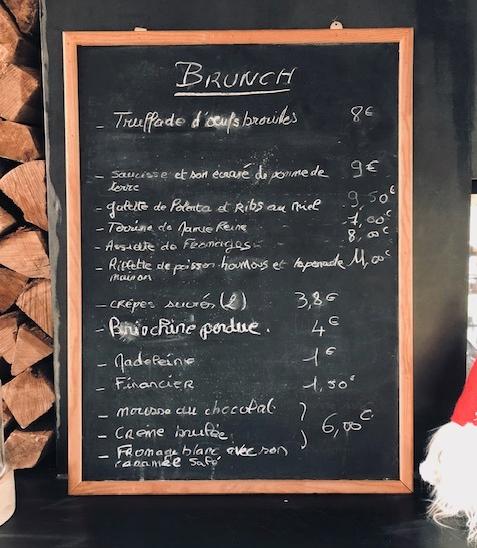 BRUNCH
- Truffade d'œufs brouillés 8€
- saucisse et son écrasé de pomme de 9€
terre
- galette de Polenta et Ribs au miel 9,50€
- Terrine de Mamie Reine 7,00€
- Assiette de Fromages 8,00€
- Riplette de poisson houmous et tapenade 11,00€
maison
- crêpes sucrés (2) 3,8€
- Briochine perdue. 4€
- Madeleine 1€
- Financier 1,50€
- mousse au chocolat
- Crème brulée 6,00€
- Fromage blanc avec son
caramel salé